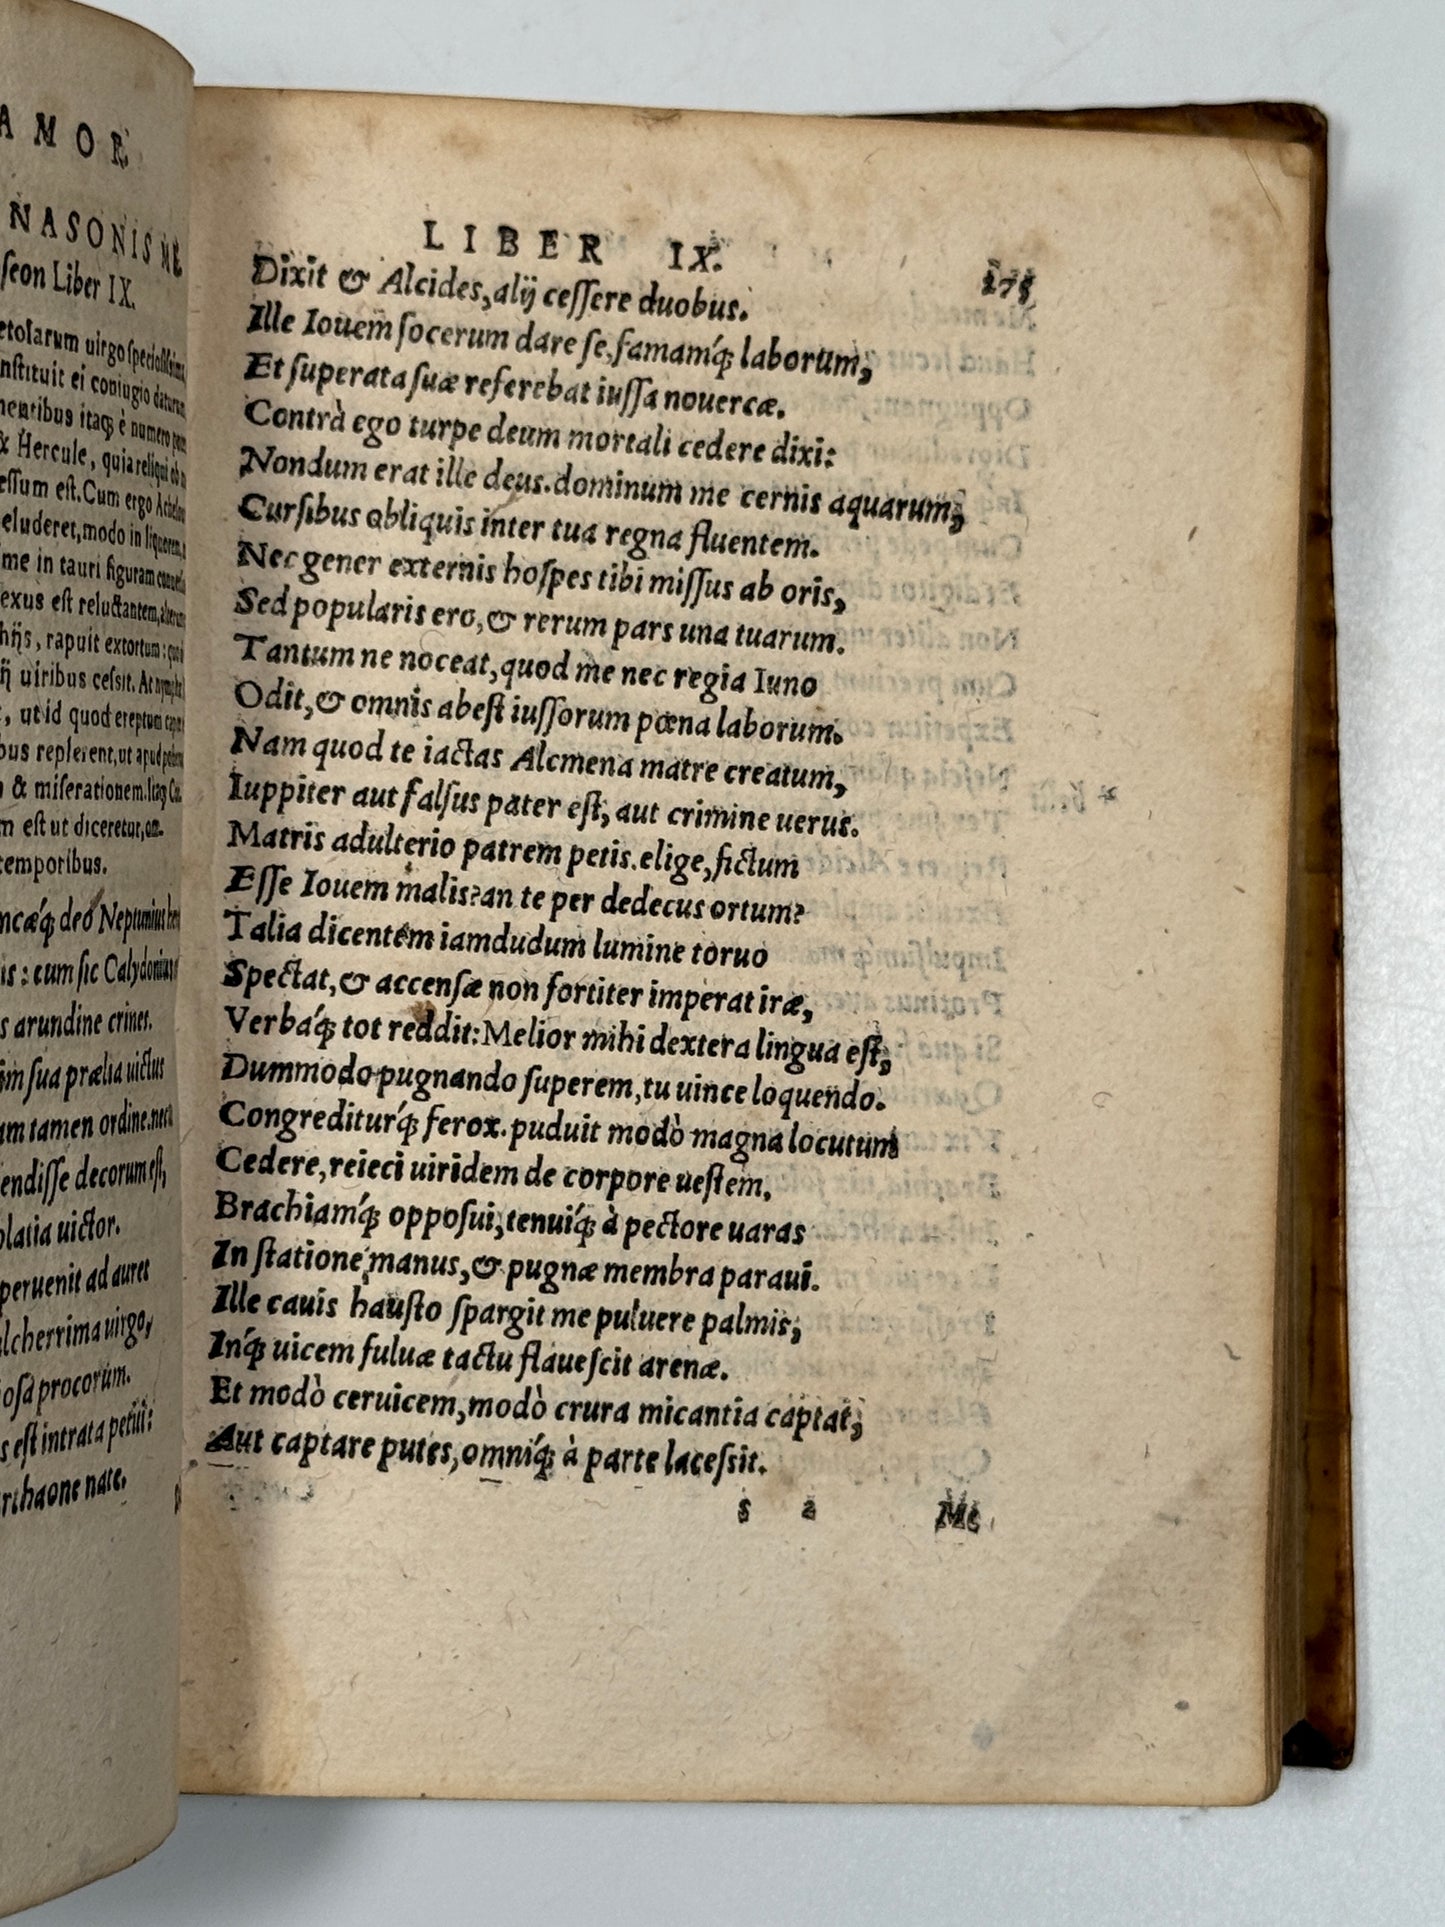 AMOR
NASONIS ME
seon Liber IX.
etolarum uirgo speciosissima,
nstituit ei coniugio daturum
mentibus itaq; è numero
& Hercule, quia reliqui ob
essum est. Cum ergo Achelous
eluderet, modo in liquorem,
me in tauri figuram
exus est reluctantem,
hijs, rapuit extortum:
ij uiribus cessit. At nymphæ
, ut id quod ereptum
bus replerent, ut apud
& miserationem. Itaq;
m est ut diceretur,
temporibus.
ncæq́; deo Neptunius
is: cum sic Calydonius
s arundine crines.
im sua prælia uictus
am tamen ordine. nec
endisse decorum est,
olatia uictor.
peruenit ad aures
lcherrima uirgo,
iosa procorum.
s est intrata petiti:
rthaone nate.
LIBER IX. 275
Dixit & Alcides, alij cessere duobus.
Ille Iouem socerum dare se, famamq́; laborum,
Et superata suæ referebat iussa nouercæ.
Contrà ego turpe deum mortali cedere dixi:
Nondum erat ille deus. dominum me cernis aquarum,
Cursibus obliquis inter tua regna fluentem.
Nec gener externis hospes tibi missus ab oris,
Sed popularis ero, & rerum pars una tuarum.
Tantum ne noceat, quod me nec regia Iuno
Odit, & omnis abest iussorum pœna laborum.
Nam quod te iactas Alcmena matre creatum,
Iuppiter aut falsus pater est, aut crimine uerus.
Matris adulterio patrem petis. elige, fictum
Esse Iouem malis? an te per dedecus ortum?
Talia dicentem iamdudum lumine toruo
Spectat, & accensæ non fortiter imperat iræ,
Verbaq́; tot reddit: Melior mihi dextera lingua est,
Dummodo pugnando superem, tu uince loquendo.
Congrediturq́; ferox. puduit modò magna locutum
Cedere, reieci uiridem de corpore uestem,
Brachiamq́; opposui, tenuiq́; à pectore uaras
In statione manus, & pugnæ membra paraui.
Ille cauis hausto spargit me puluere palmis,
Inq́; uicem fuluæ tactu flauescit arenæ.
Et modò ceruicem, modò crura micantia captat,
Aut captare putes, omniq́; à parte lacessit.
s 2 Me